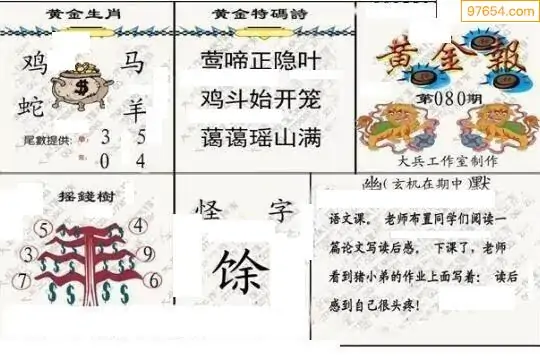 97654.com
黄金生肖
鸡 马
蛇 羊
尾數提供: 單: 3 5
0 4
黄金特碼詩
莺啼正隐叶
鸡斗始开笼
蔼蔼瑶山满
黄金報
第080期
大兵工作室制作
摇錢樹
5 4
3 9
7 6
怪 字
馀
幽(玄机在期中)默
语文课。老师布置同学们阅读一
篇论文写读后感。下课了,老师
看到猪小弟的作业上面写着:读后
感到自己很头疼!